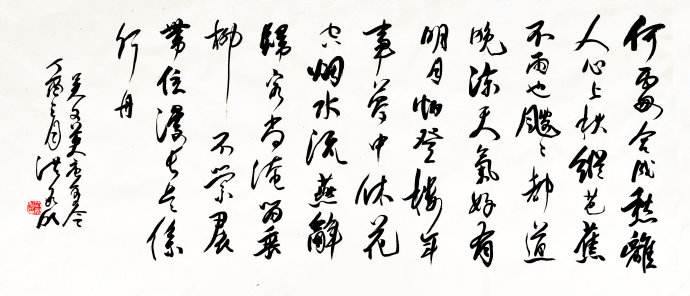 何處合成愁離
人心上秋縱芭蕉
不雨也颼々都道
晚涼天氣好有
明月怕登樓年
事夢中休花
空烟水流燕辭
歸客尚淹留垂
柳不縈裙
帶住漫長是係
行舟
吴文英唐多令